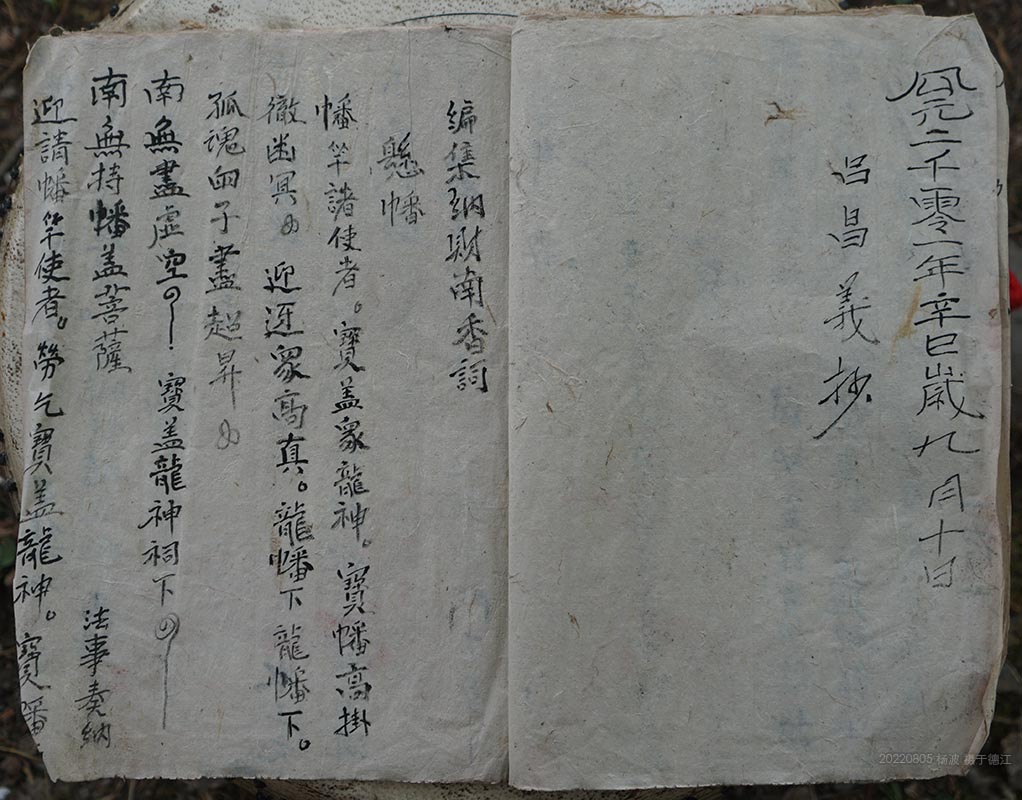 公元二千零一年辛巳歲九月十日
吕昌義抄
编集纳財南香詞
懸幡
幡竿諸使者。寳盖衆龍神。寳幡高掛
徹幽冥 迎迓衆高真。龍幡下龍幡下。
孤魂 子盡超昇
南無盡虚空 寳盖龍神祠下
南無持幡盖菩薩 法事奏纳
迎請幡竿使者。勞乞寳盖龍神。寳幡
20220805 杨波 摄于德江